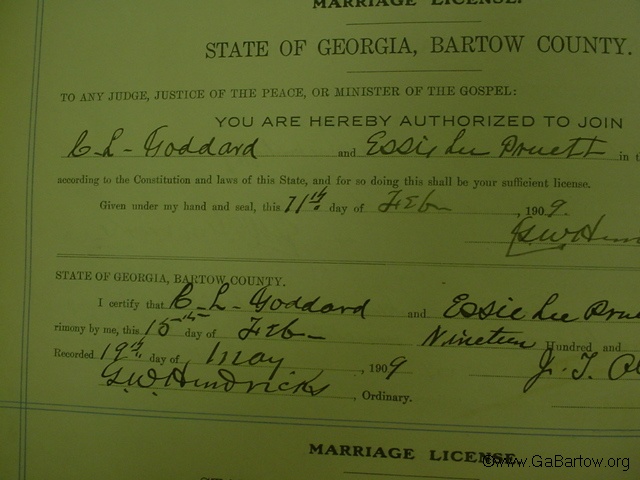 MARRIAGE LICENSE.
STATE OF GEORGIA, BARTOW COUNTY.
TO ANY JUDGE, JUSTICE OF THE PEACE, OR MINISTER OF THE GOSPEL:
YOU ARE HEREBY AUTHORIZED TO JOIN
C. L. Goddard and Essie Lee Pruett in t
according to the Constitution and laws of this State, and for so doing this shall be your sufficient license.
Given under my hand and seal, this 11th day of Feb , 1909.
G.W. Hen
STATE OF GEORGIA, BARTOW COUNTY.
I certify that C. L. Goddard and Essie Lee Prue
rimony by me, this 15th day of Feb Nineteen Hundred and
Recorded 19th day of May , 1909 J. T.
G.W. Hendricks , Ordinary.
MARRIAGE LICENSE.
©www.GaBartow.org